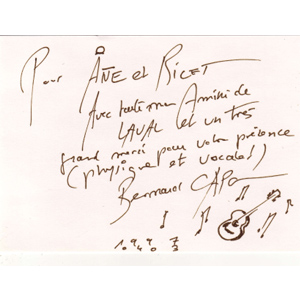 Pour AÑE et RICET
Avec toute mon Amitié de
LAVAL et un très
grand merci pour votre présence
(physique et vocale!)
Bernard